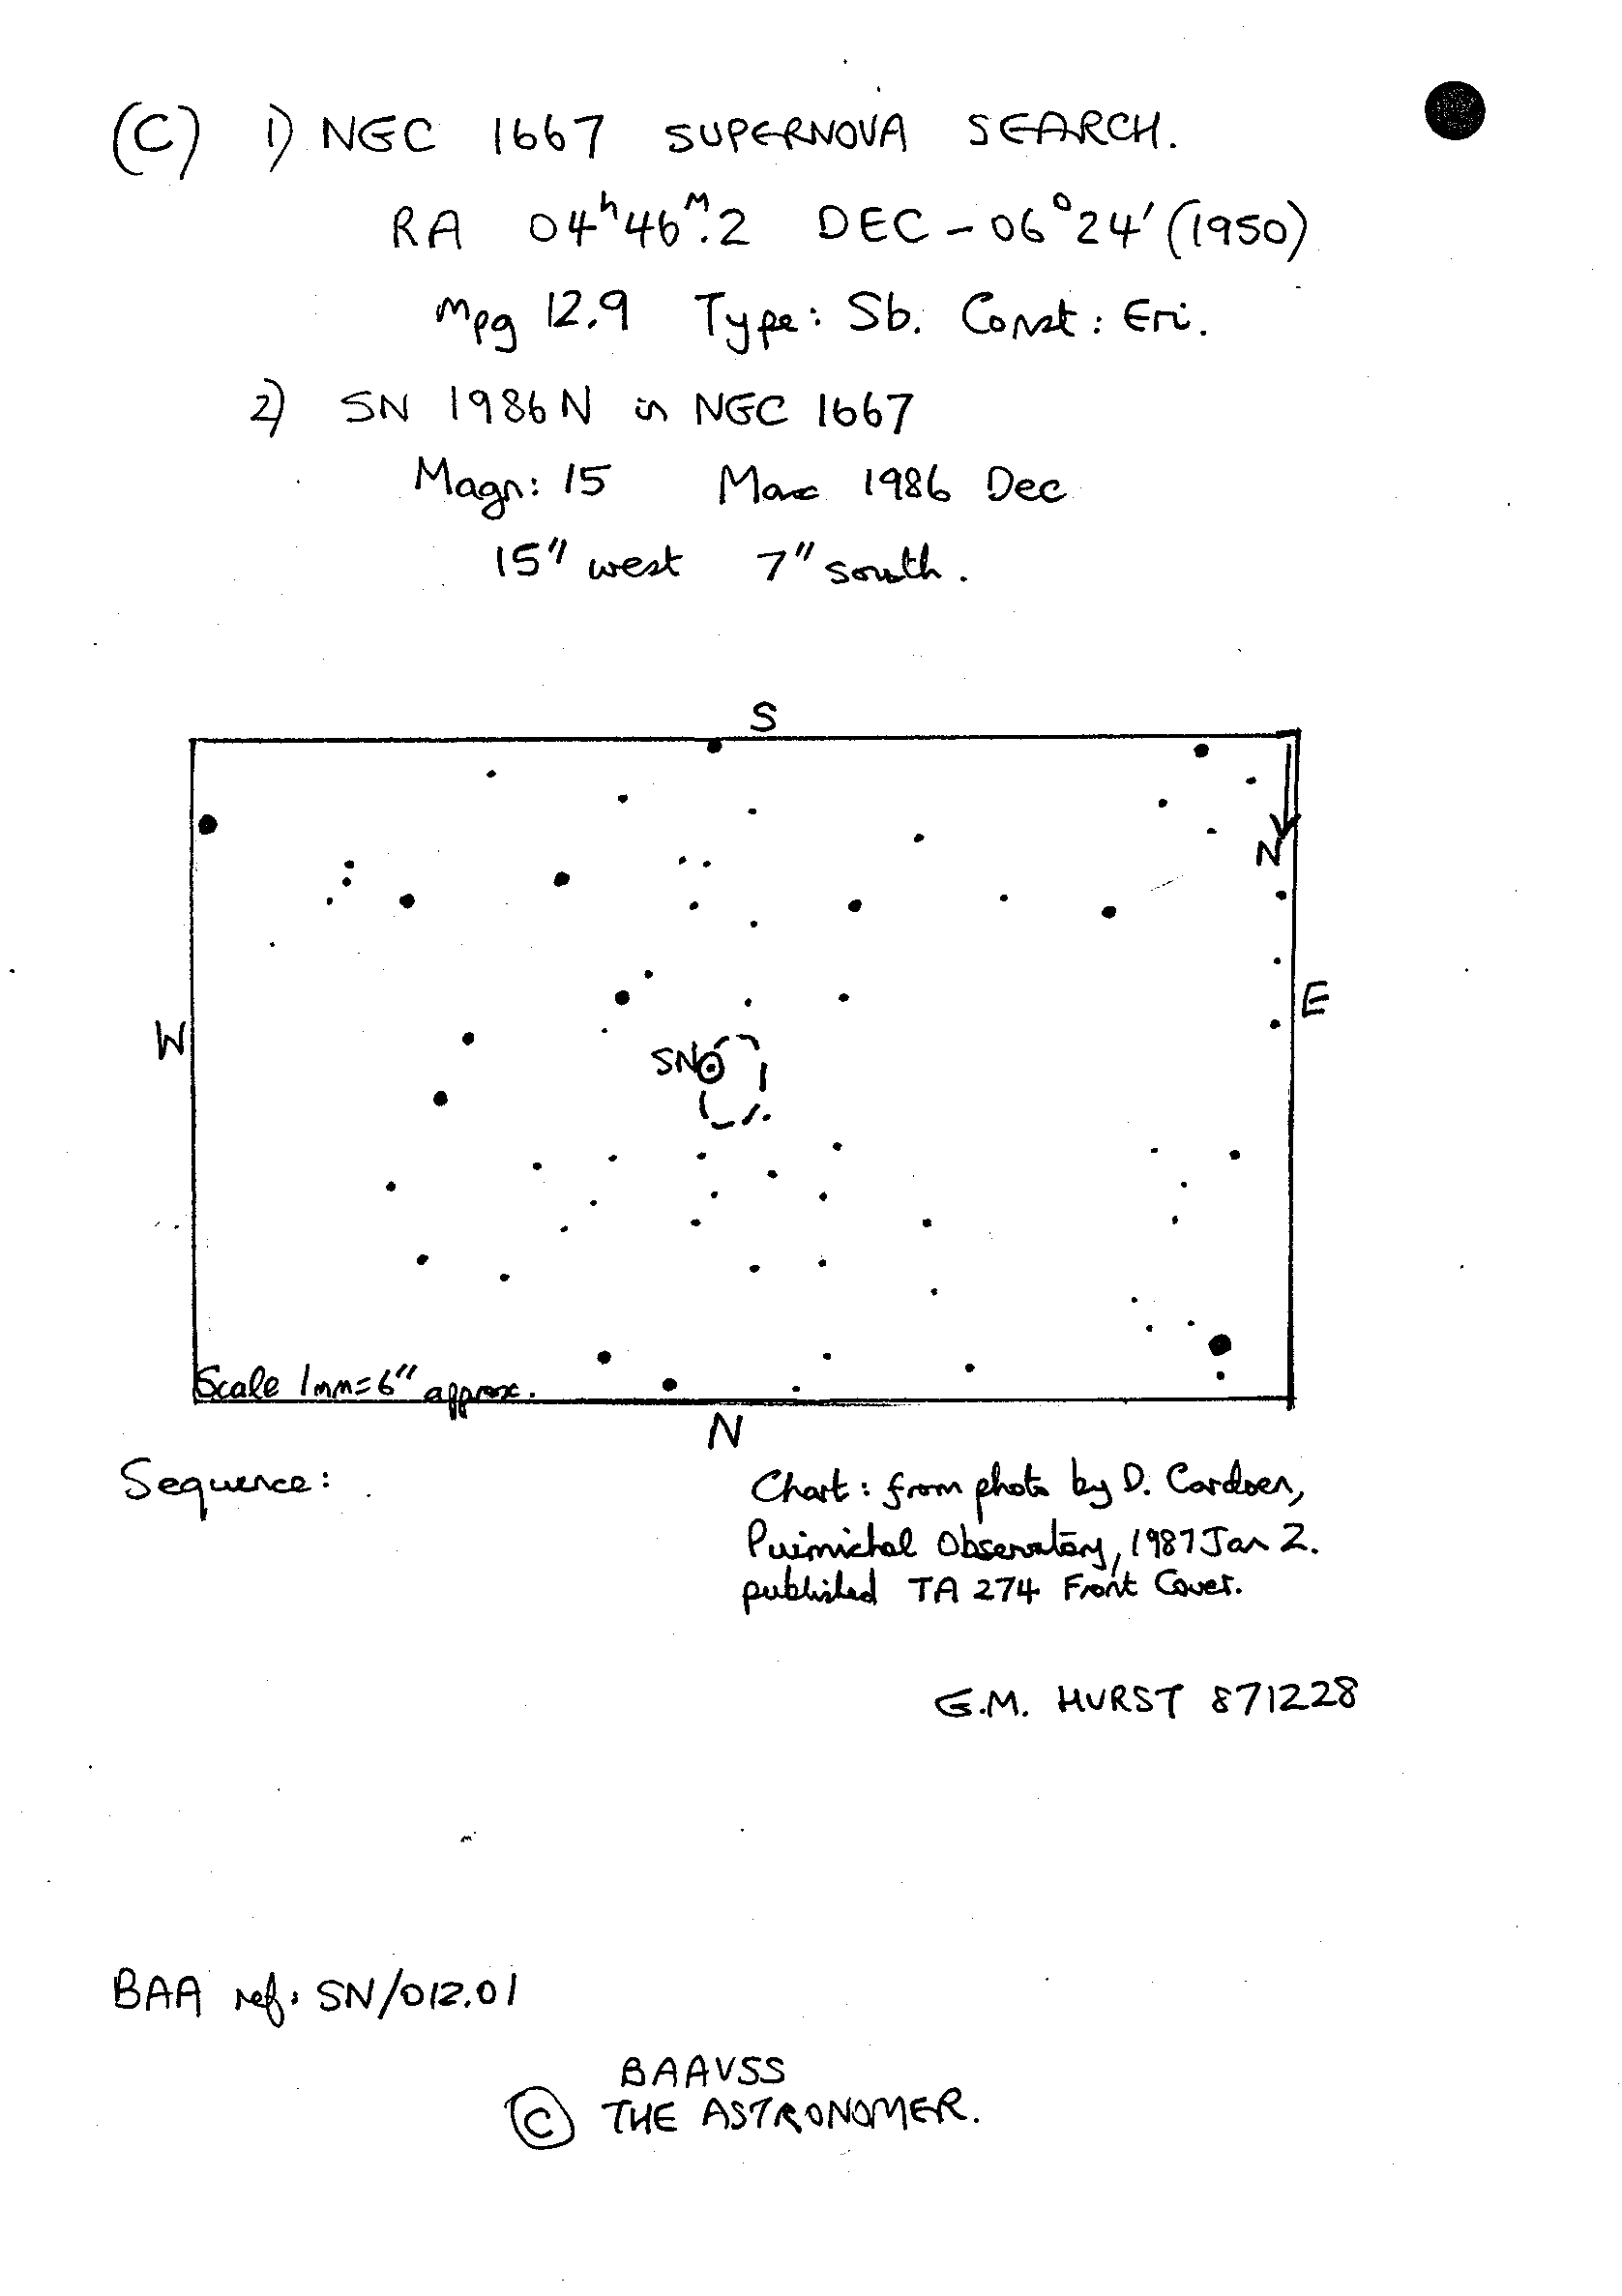 (C) 1) NGC 1667 SUPERNOVA SEARCH.
RA 04ʰ46ᴹ.2 DEC -06°24' (1950)
mpg 12.9 Type: Sb. Const: Eri.
2) SN 1986N in NGC 1667
Magn: 15 Max 1986 Dec
15" west 7" south.
S
N
W
E
SN
Scale 1mm=6" approx.
N
Sequence:
Chart: from photo by D. Cardoen,
Puimichel Observatory, 1987 Jan 2.
published TA 274 Front Cover.
G.M. HURST 871228
BAA ref: SN/012.01
BAAVSS
© THE ASTRONOMER.